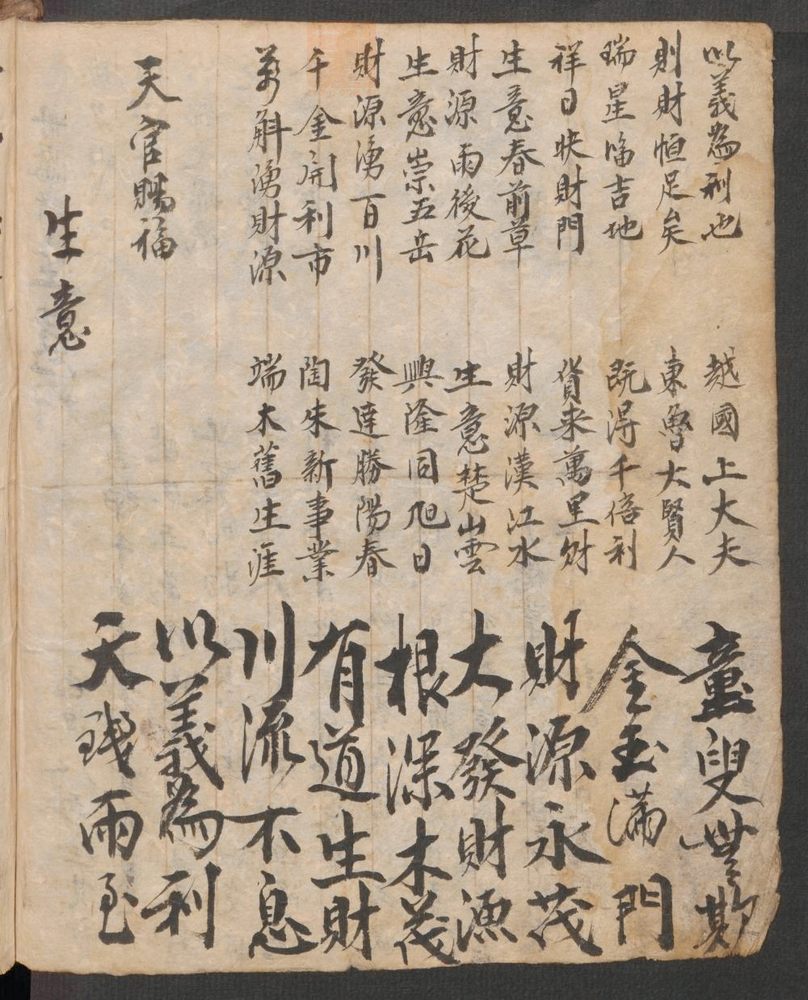 以義為利也
則財恒足矣
瑞星臨吉地
祥日映財門
生意春前草
財源雨後花
生意崇五岳
財源湧百川
千金開利市
萬斛湧財源
天官賜福
生意
越國上大夫
東魯大賢人
既得千倍利
貨来萬里財
財源漢江水
生意楚山雲
興隆同旭日
發達勝陽春
陶朱新事業
端木舊生涯
童叟無欺
金玉滿門
財源永茂
大發財源
根深木茂
有道生財
川流不息
以義為利
天錢雨至